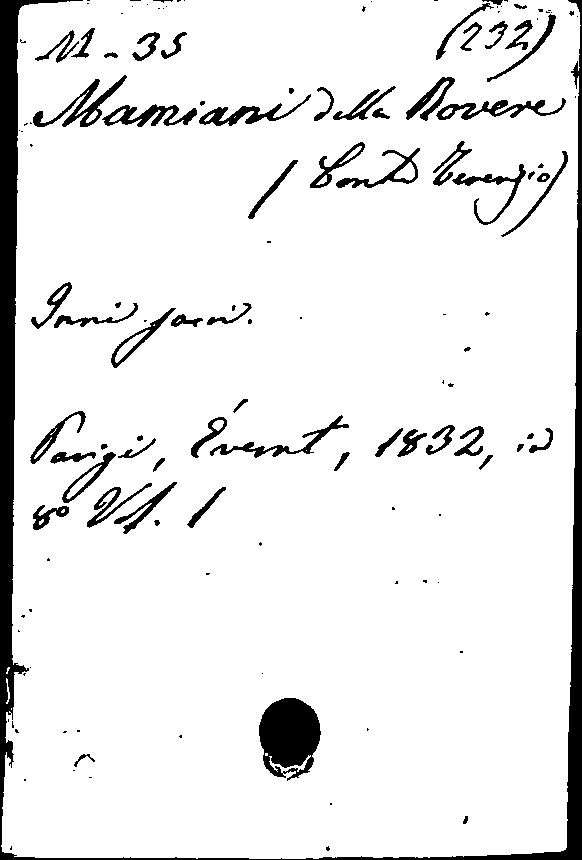 M - 35 (232)
Mamiani della Rovere
(Conte Terenzio)
Inni sacri.
Parigi, Éverat, 1832, in
8º Vol. 1